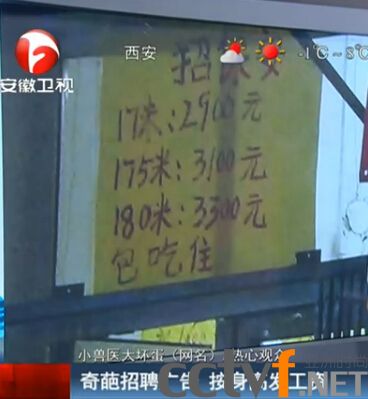 安徽卫视
西安
-1℃~8℃
招保安
17米:2900元
175米:3100元
180米:3300元
包吃住
小兽医大坏蛋(网名):热心观众
奇葩招聘广告 按身高发工资
cctvf.NET